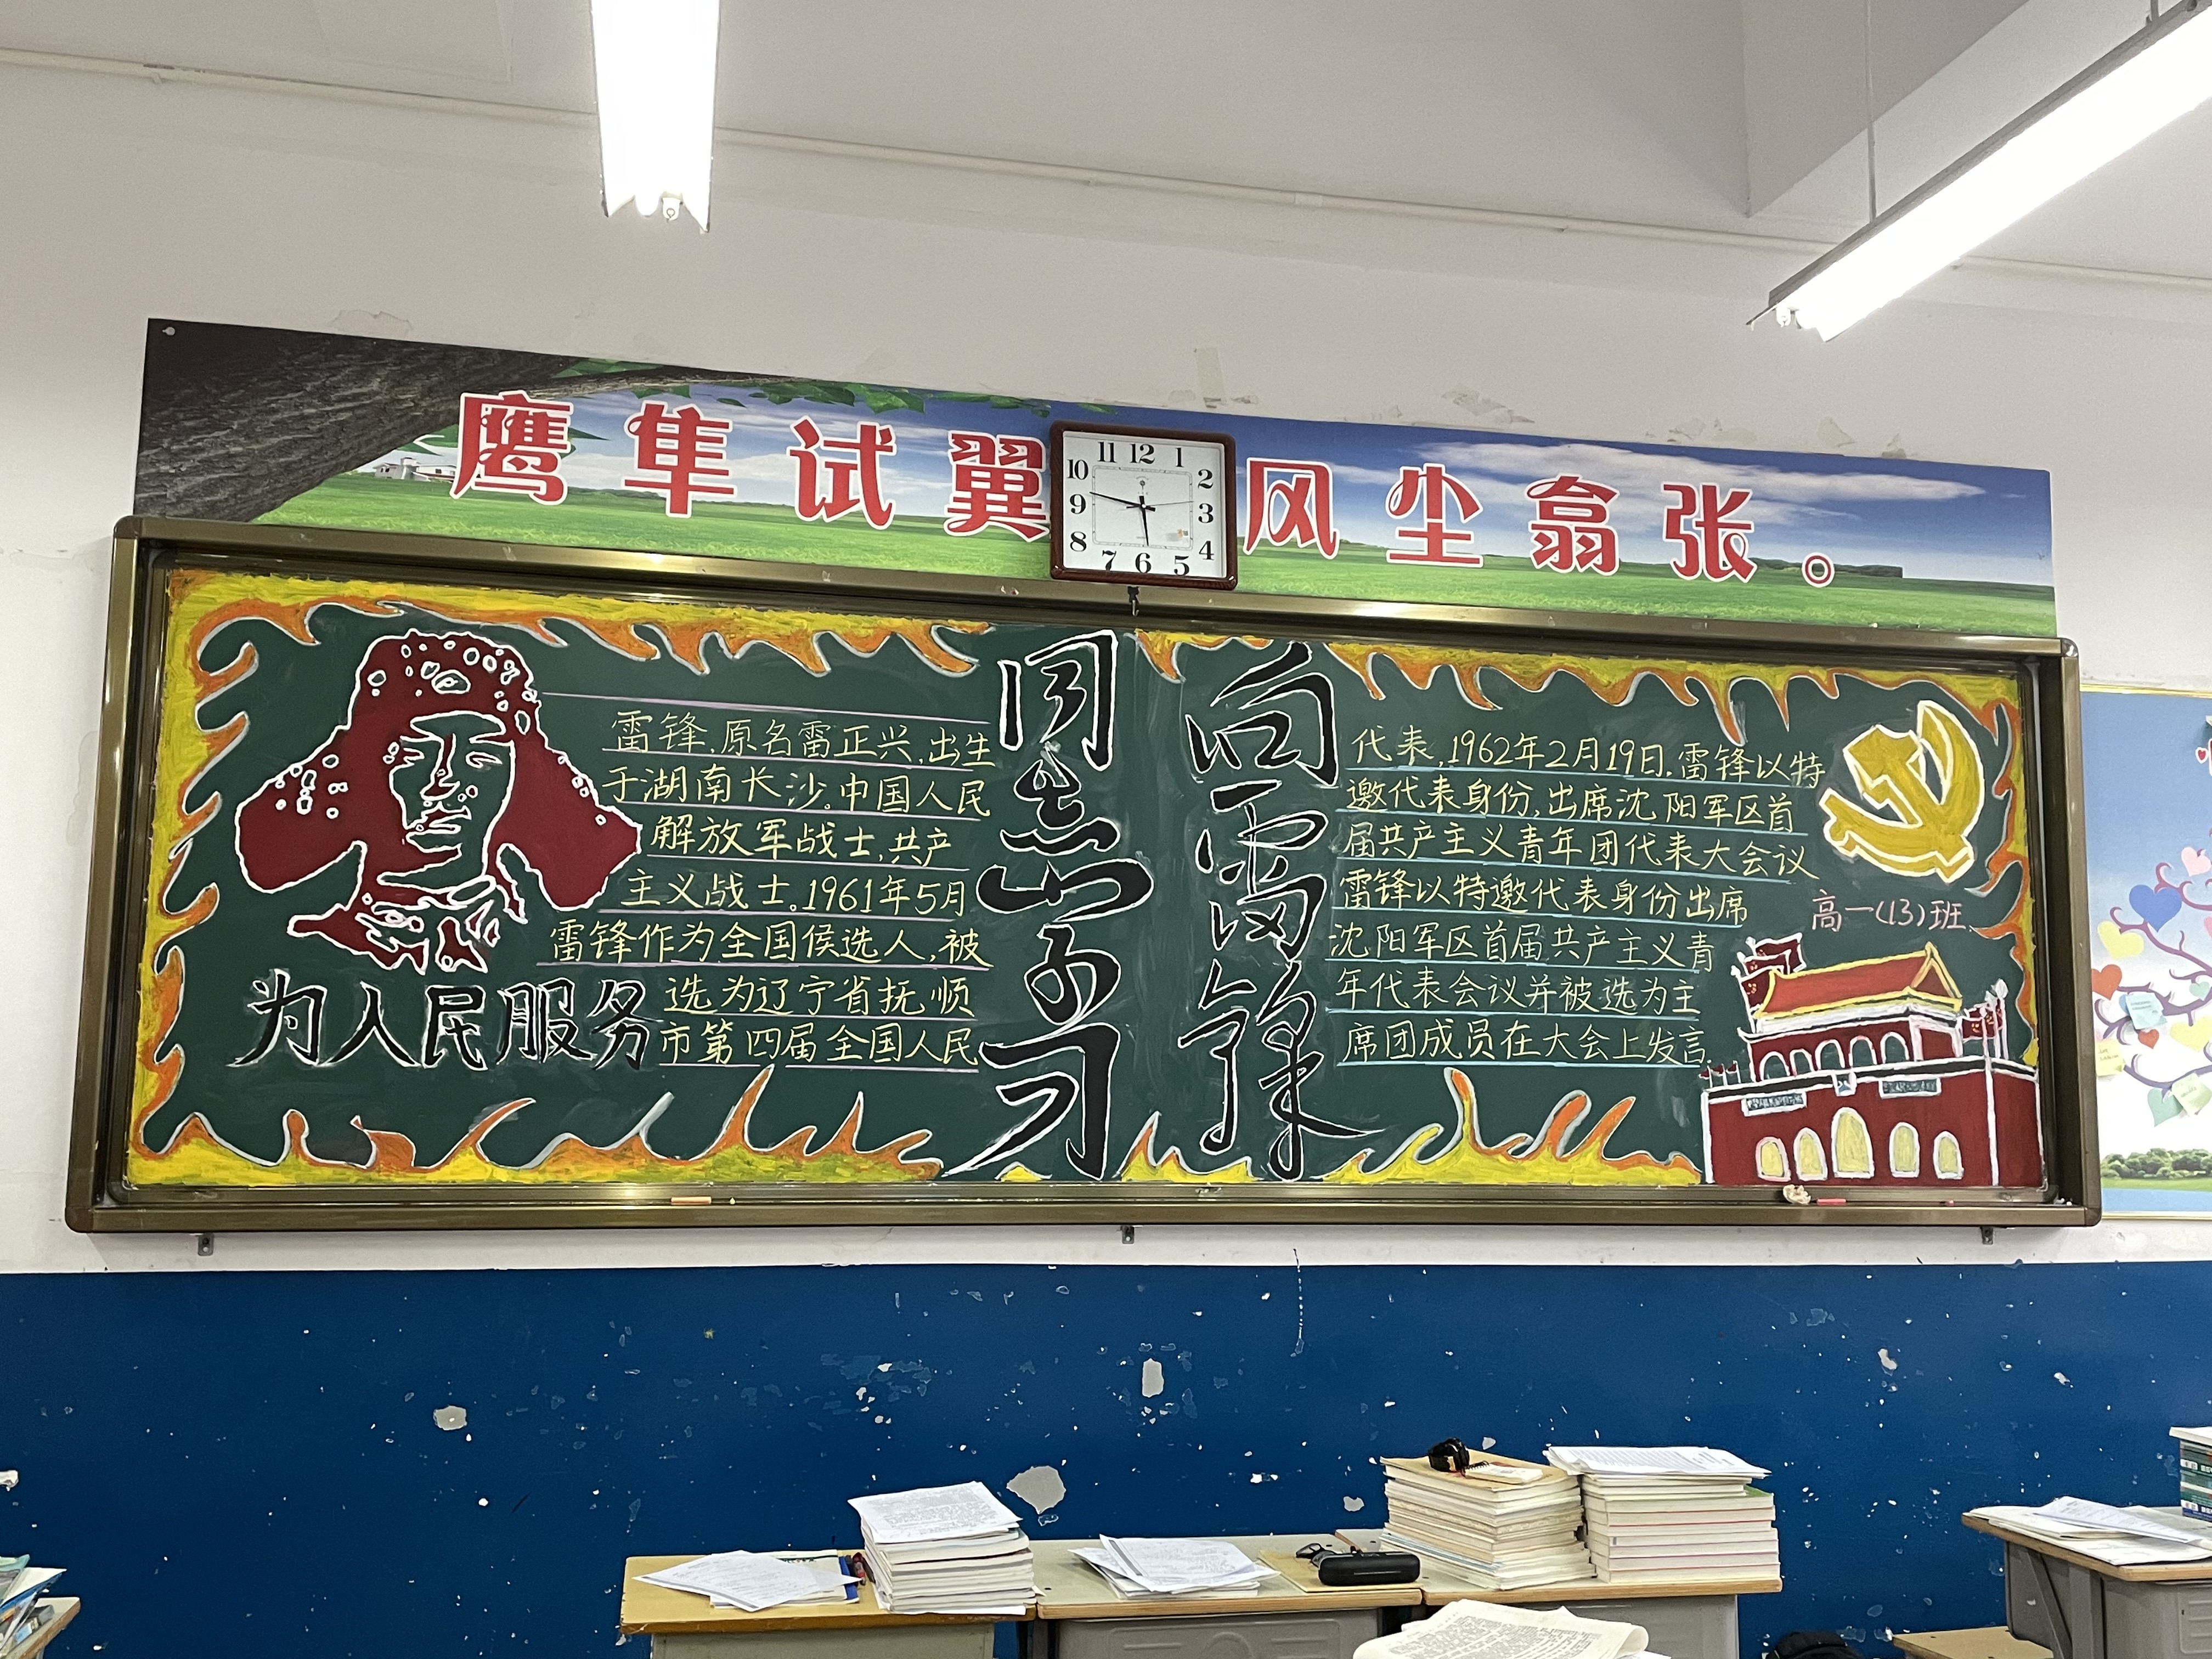 鹰隼试翼 风尘翕张。
11 12 1
10 2
9 3
8 4
7 6 5
雷锋,原名雷正兴,出生
于湖南长沙。中国人民
解放军战士,共产
主义战士。1961年5月
雷锋作为全国侯选人,被
选为辽宁省抚顺
市第四届全国人民
为人民服务
向雷锋
同志学习
代表,1962年2月19日,雷锋以特
邀代表身份,出席沈阳军区首
届共产主义青年团代表大会议
雷锋以特邀代表身份出席
沈阳军区首届共产主义青
年代表会议并被选为主
席团成员在大会上发言.
高一(13)班.